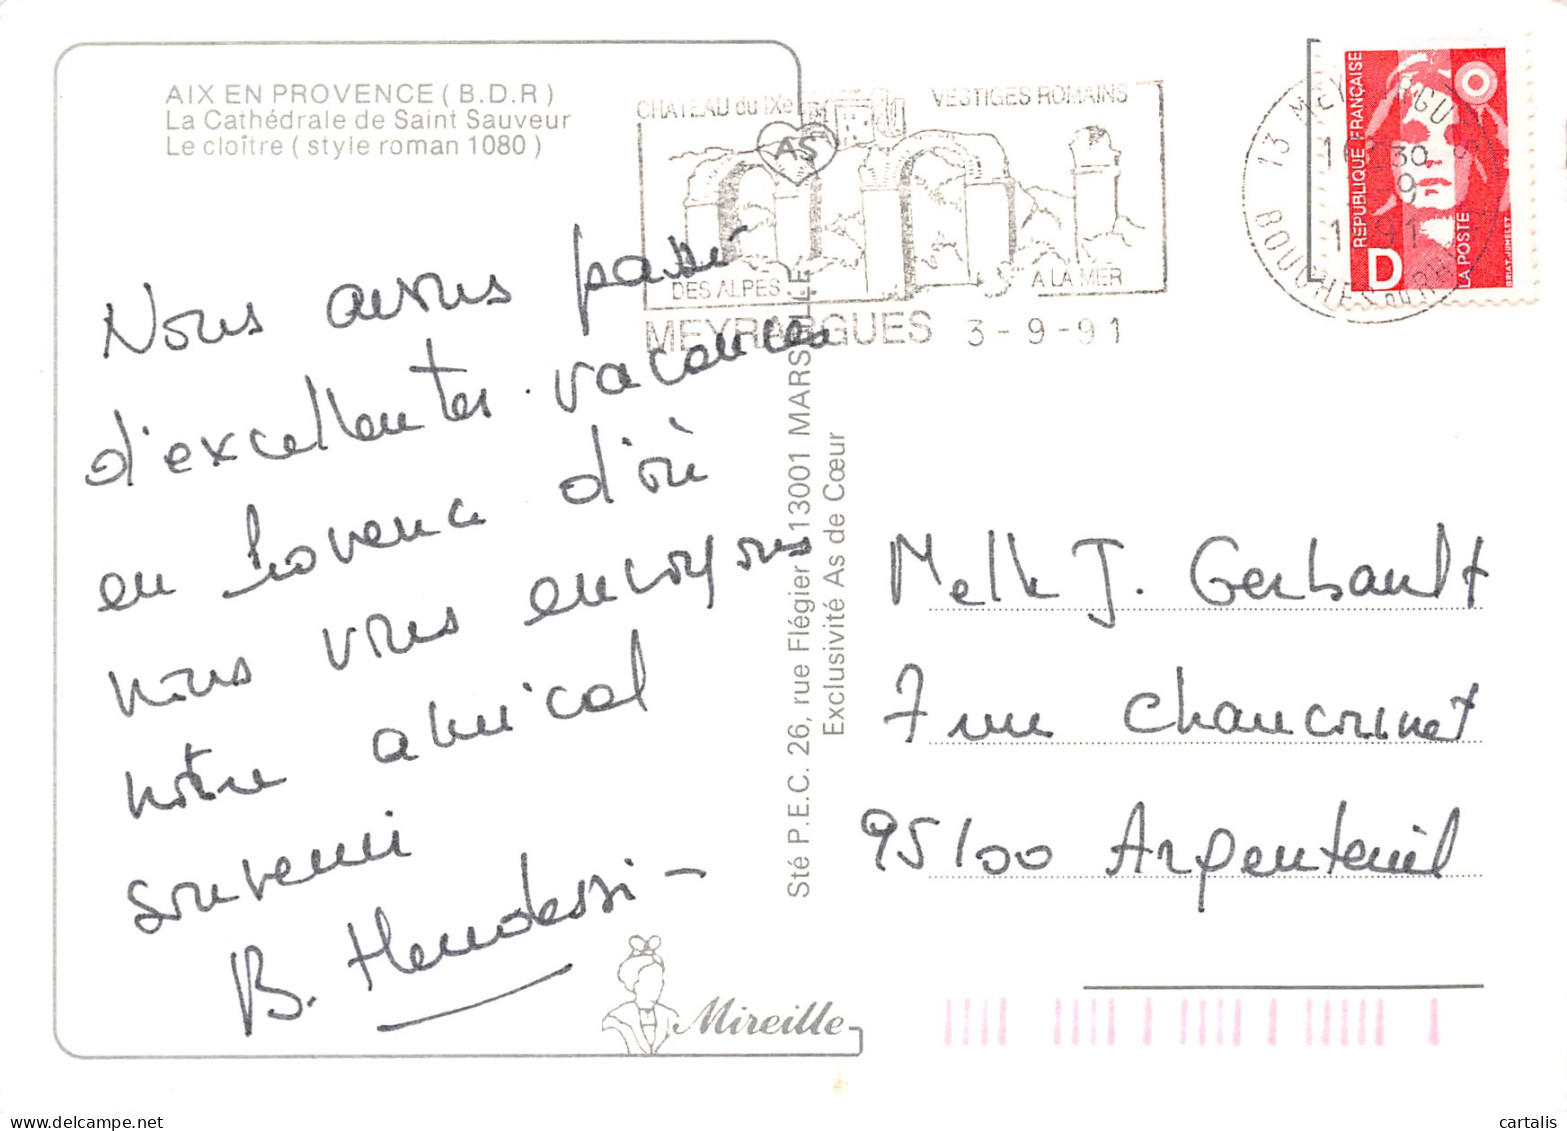 AIX EN PROVENCE ( B.D.R )
La Cathédrale de Saint Sauveur
Le cloître ( style roman 1080 )
CHATEAU du IXe
VESTIGES ROMAINS
AS
DES ALPES
A LA MER
MEYRARGUES 3-9-91
13 MEYRARGUES
BOUCHES DU RHONE
RÉPUBLIQUE FRANÇAISE
D
LA POSTE
BRIAT-JUMELET
Nous avons passé
d'excellentes vacances
en Provence d'où
nous vous envoyons
notre amical
souvenir
B.
Sté P.E.C. 26, rue Flégier 13001 MARSEILLE
Exclusivité As de Cœur
Melle J. Gerbault
7 rue
95100 Argenteuil
Mireille
cartalis